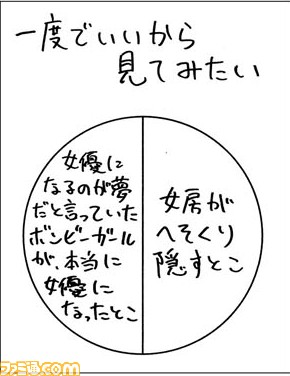 一度でいいから
見てみたい
女優に
なるのが夢
だと言っていた
ボンビーガール
が、本当に
女優に
なったとこ
女房が
へそくり
隠すとこ
ファミ通.com